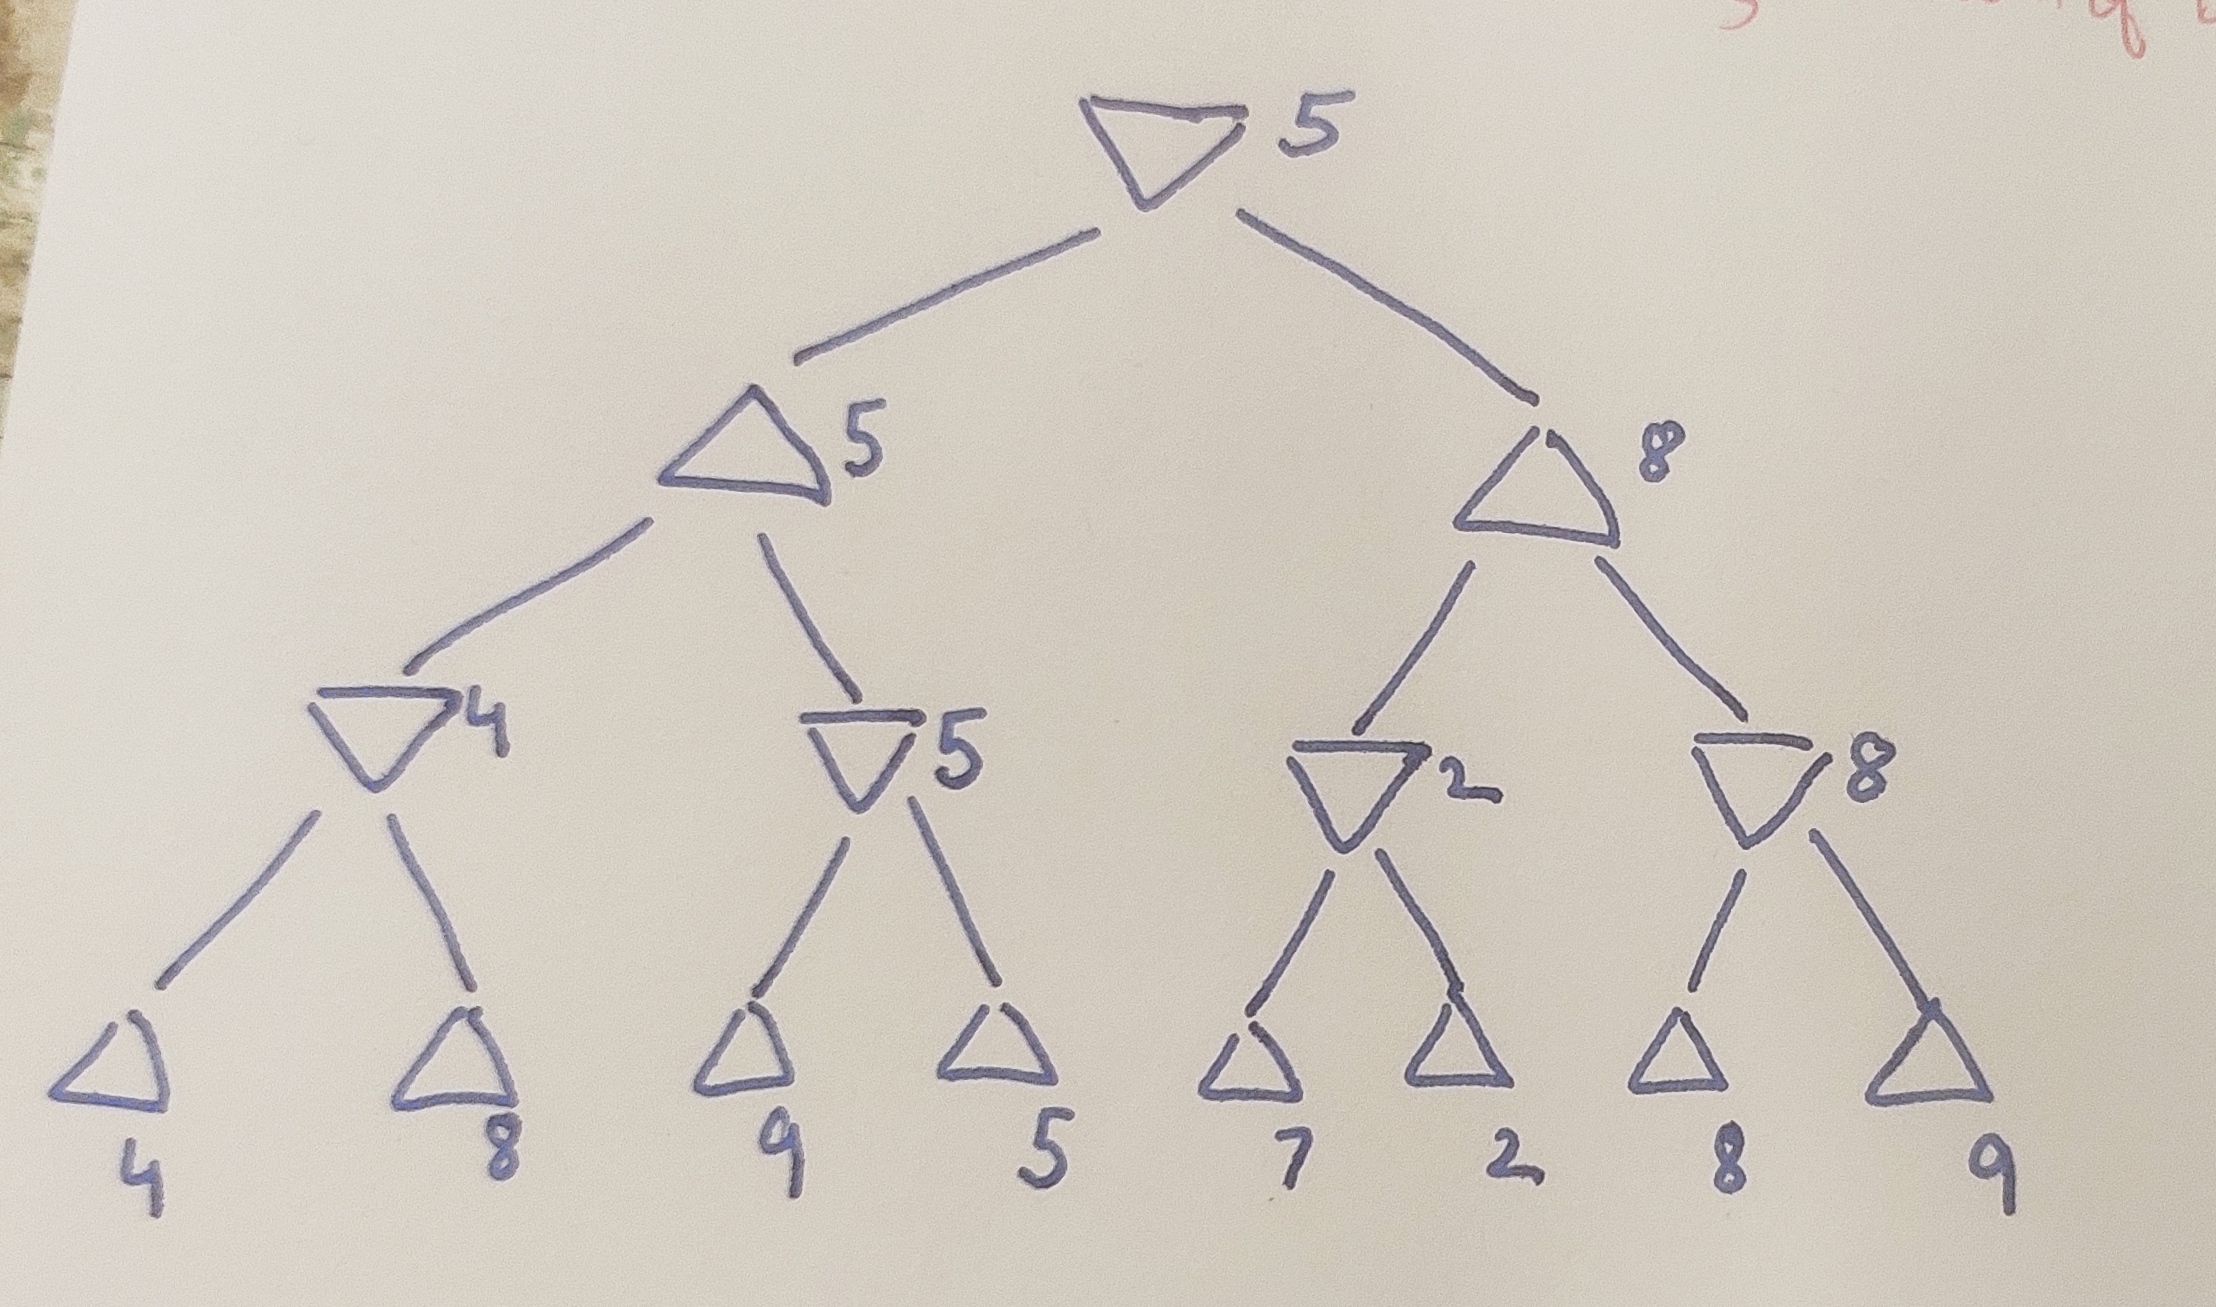 5
5 8
4 5 2 8
4 8 9 5 7 2 8 9